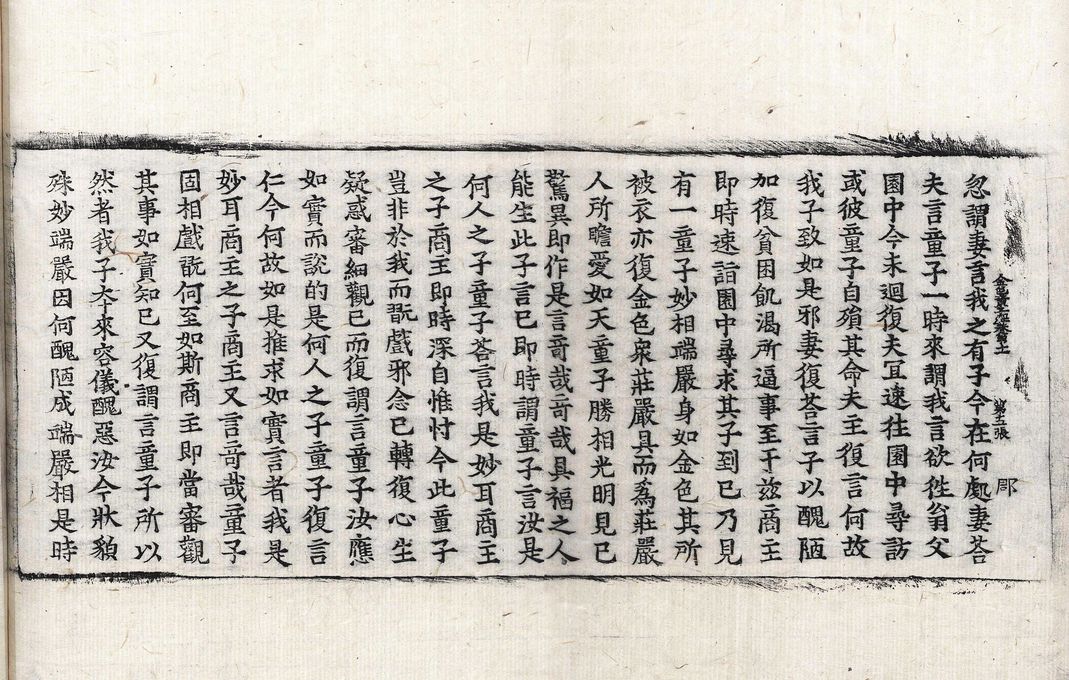 金色童子因緣經 第五張 郡
忽謂妻言我之有子今在何處妻荅
夫言童子一時來謂我言欲徃翁父
園中今未迴復夫冝速往園中尋訪
或彼童子自殞其命夫主復言何故
我子致如是邪妻復荅言子以醜陋
加復貧困飢渴所逼事至于兹商主
即時速詣園中尋求其子到已乃見
有一童子妙相端嚴身如金色其所
被衣亦復金色衆莊嚴具而爲莊嚴
人所瞻愛如天童子勝相光明見已
驚異即作是言竒哉竒哉具福之人
能生此子言已即時謂童子言汝是
何人之子童子荅言我是妙耳商主
之子商主即時深自惟忖今此童子
豈非於我而翫戲邪念已轉復心生
疑惑審細觀已而復謂言童子汝應
如實而說的是何人之子童子復言
仁今何故如是推求如實言者我是
妙耳商主之子商主又言竒哉童子
固相戲翫何至如斯商主即當審觀
其事如實知已又復謂言童子所以
然者我子夲來容儀醜惡汝今狀貌
殊妙端嚴因何醜陋成端嚴相是時